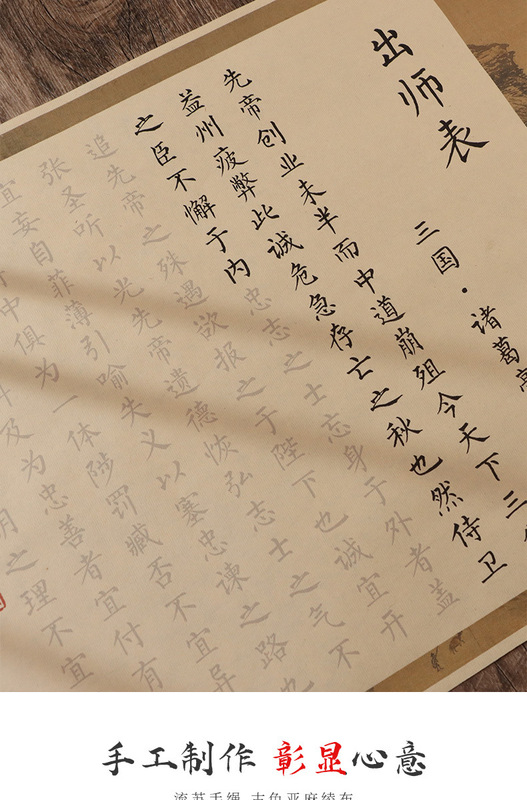 出师表
三国·诸葛
先帝创业未半而中道崩殂今天下三
益州疲弊此诚危急存亡之秋也然侍卫
之臣不懈于内忠志之士忘身于外者盖
追先帝之殊遇欲报之于陛下也诚宜开
张圣听以光先帝遗德恢弘志士之气不
宜妄自菲薄引喻失义以塞忠谏之路也
中俱为一体陟罚臧否不宜异
及为忠善者宜付有
明之理不宜
手工制作 彰显心意